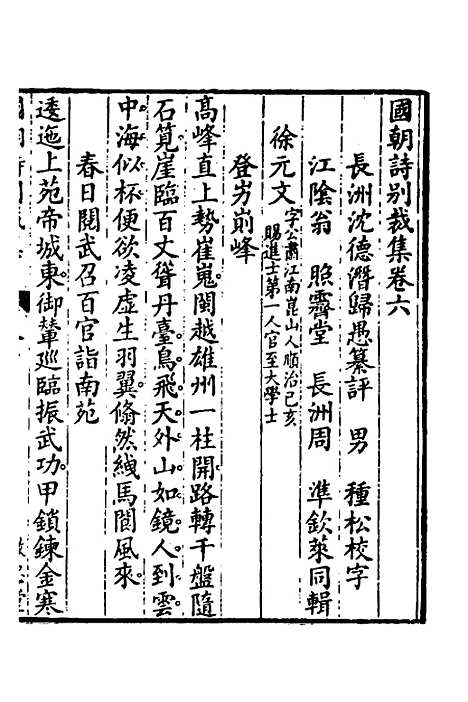 國朝詩別裁集卷六
長洲沈德潛歸愚纂評 男 種松校字
江陰翁 照霽堂 長洲周 準欽萊同輯
徐元文 字公肅江南崑山人順治己亥
賜進士第一人官至大學士
登岕崱峰
高峰直上勢崔嵬閩越雄州一柱開路轉千盤隨
石筧崖臨百丈聳丹臺鳥飛天外山如鏡人到雲
中海似杯便欲凌虛生羽翼翛然緤馬閬風來
春日閱武召百官詣南苑
逶迤上苑帝城東御輦巡臨振武功甲鎖鍊金寒